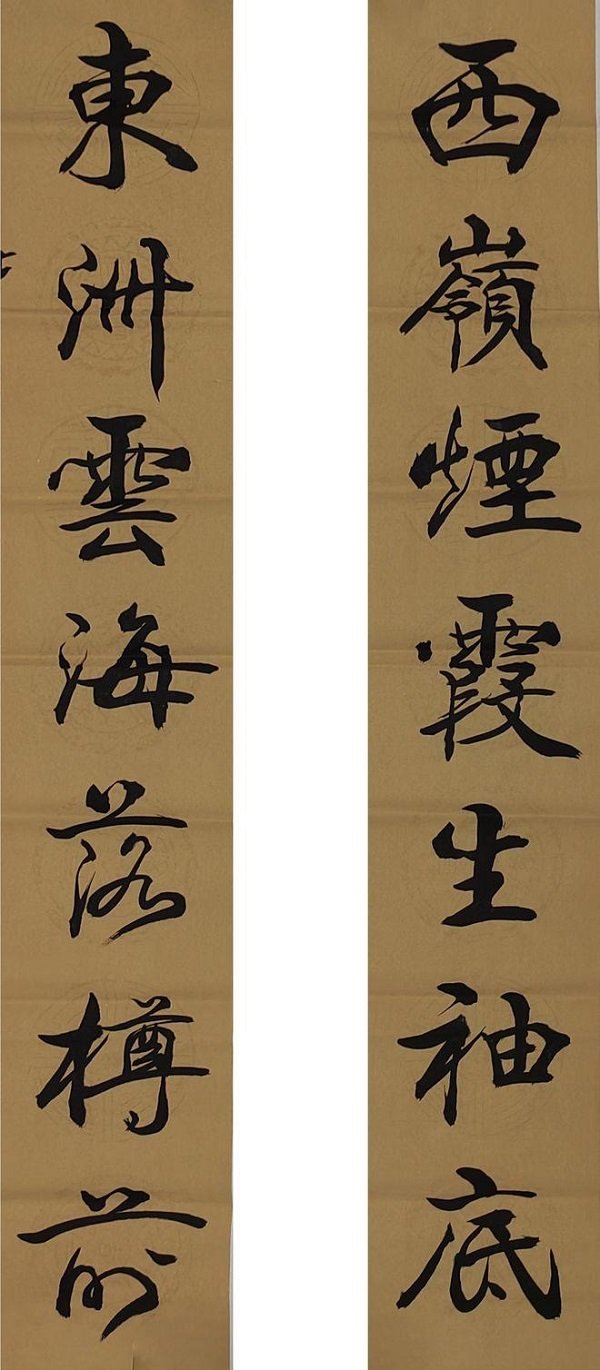 西嶺煙霞生袖底
東洲雲海落樽前